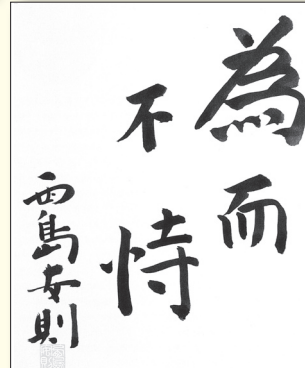 為而
不恃
西島安則